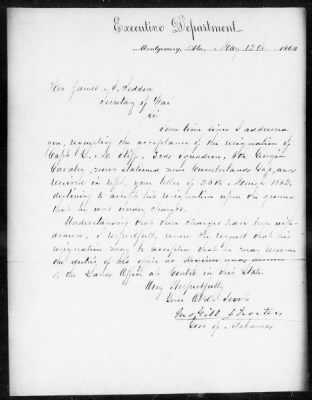 Executive Department.
Montgomery, Ala., May 12th 1863
Hon James A. Seddon
Secretary of War
Sir
Sometime since I addressed
you, requesting the acceptance of the resignation of
Capt 3rd Squadron, 6th Georgia
Cavalry, now stationed near Cumberland Gap, and
received in reply, your letter of 26th 1863,
declining to accept his resignation upon the ground
that he was under charges.
Understanding that these charges have been with-
drawn, I respectfully renew the request that his
resignation may be accepted that he may resume
the duties of his office as
to the Land Office at Centre in this State
Very Respectfully
Your Obdt Servt
Jno Gill Shorter
Gov of Alabama